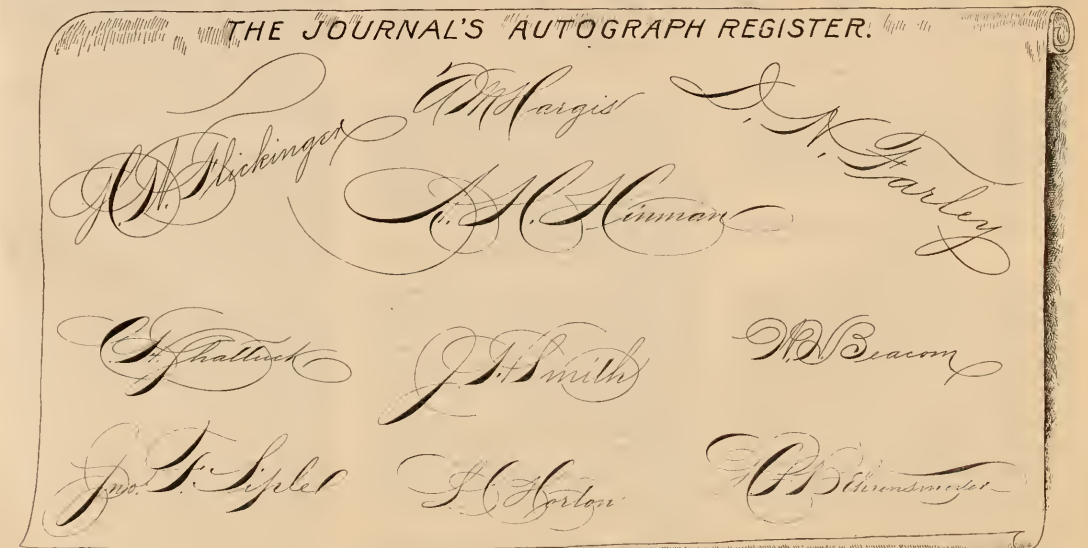 THE JOURNAL'S AUTOGRAPH REGISTER.
A M Hargis
D. N. Farley
Flickinger
A. H. Hinman
Shattuck
Smith
W Beacom
Jno. F. Siple
Horton
Behrensmeyer